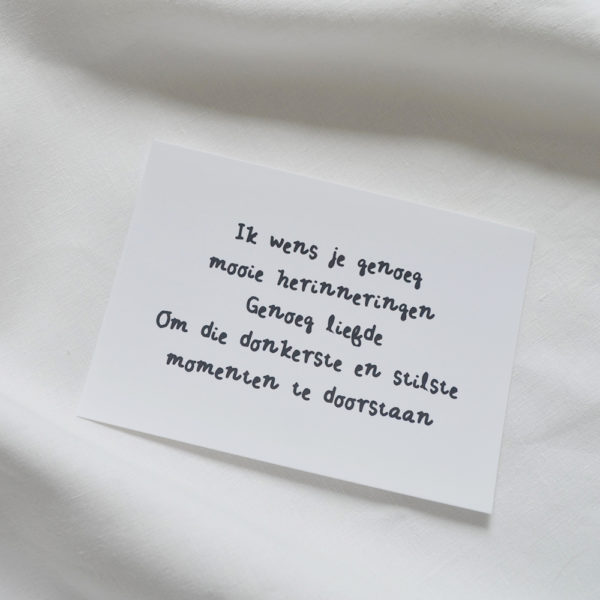 Ik wens je genoeg
mooie herinneringen
Genoeg liefde
Om die donkerste en stilste
momenten te doorstaan